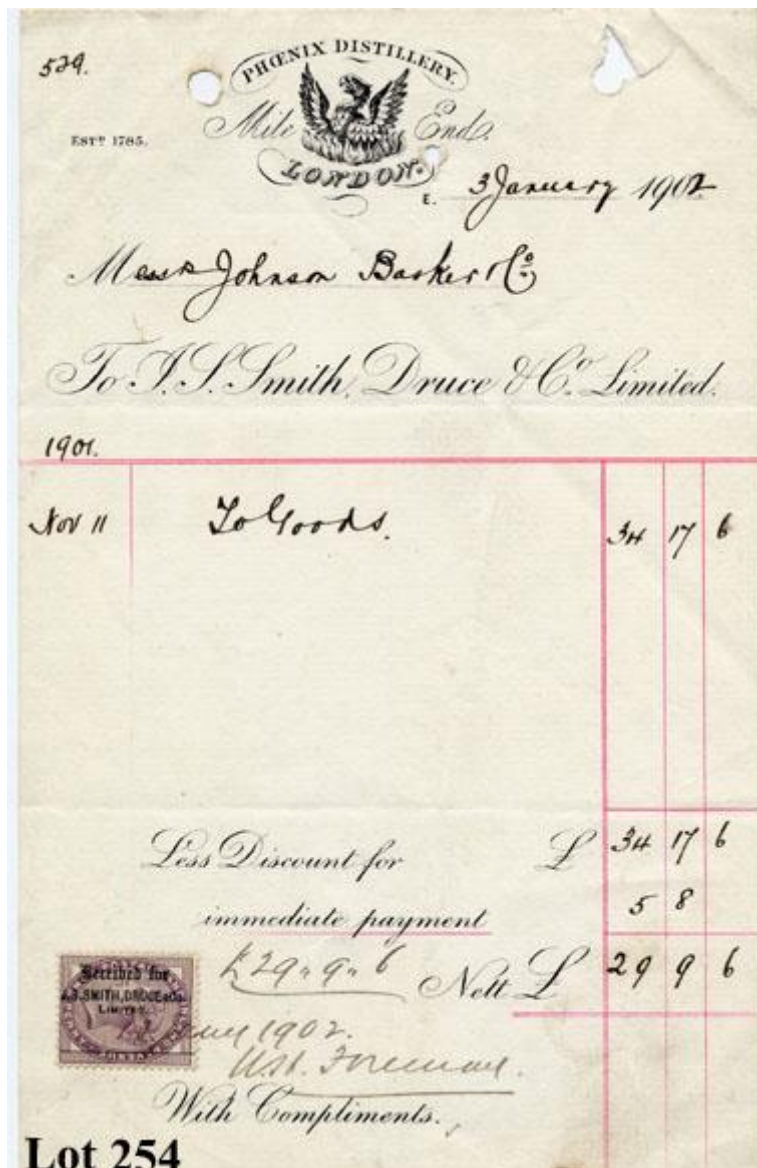 529.
PHŒNIX DISTILLERY.
Mile End.
ESTD 1785.
LONDON.
E. 3 January 1902
Messrs Johnson Barker & Co
To J. S. Smith, Druce & Co. Limited.
1901.
Nov 11 To Goods. 34 17 6
Less Discount for £ 34 17 6
immediate payment 5 8
£29"9"6 Nett £ 29 9 6
Received for
J.S. SMITH, DRUCE & Co.
LIMITED.
1902.
Foreman.
With Compliments.
Lot 254